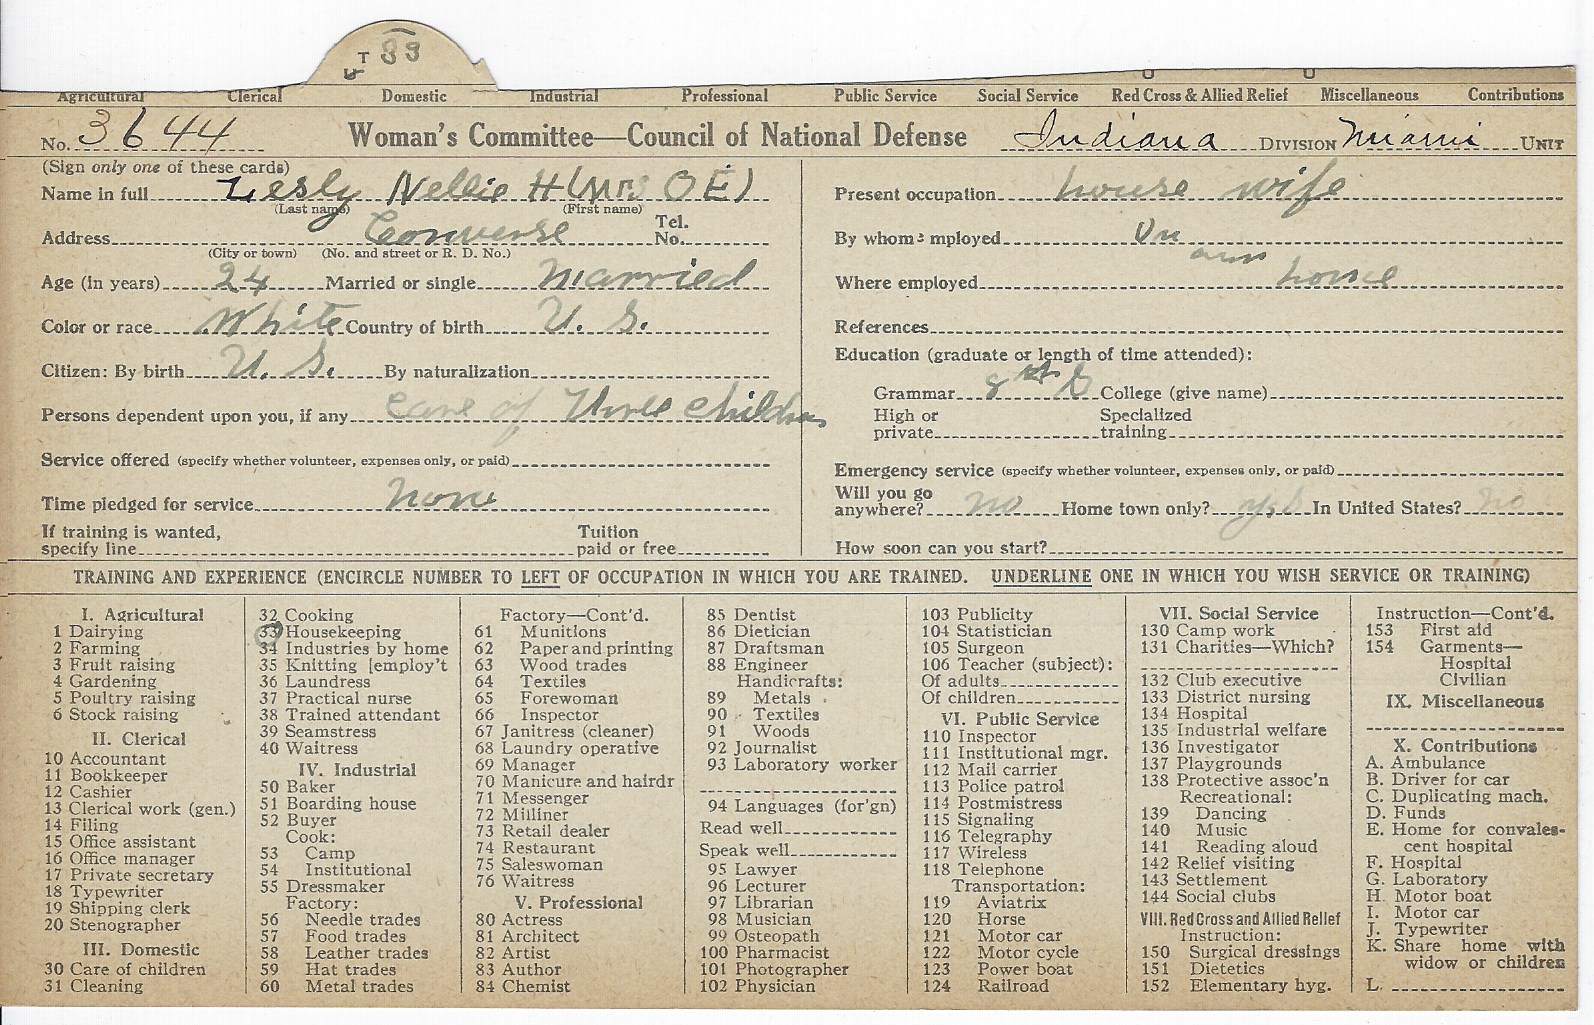 T 33
Agricultural Clerical Domestic Industrial Professional Public Service Social Service Red Cross & Allied Relief Miscellaneous Contributions
No. 3644 Woman's Committee—Council of National Defense Indiana DIVISION Miami UNIT
(Sign only one of these cards)
Name in full Lesly Nellie H (Mrs O E)
(Last name) (First name)
Address Converse Tel. No.
(City or town) (No. and street or R. D. No.)
Age (in years) 24 Married or single Married
Color or race White Country of birth U. S.
Citizen: By birth U. S. By naturalization
Persons dependent upon you, if any Care of three children
Service offered (specify whether volunteer, expenses only, or paid)
Time pledged for service none
If training is wanted, specify line Tuition paid or free
Present occupation house wife
By whom employed
Where employed home
References
Education (graduate or length of time attended):
Grammar 8 College (give name)
High or private Specialized training
Emergency service (specify whether volunteer, expenses only, or paid)
Will you go anywhere? no Home town only? yes In United States? no
How soon can you start?
TRAINING AND EXPERIENCE (ENCIRCLE NUMBER TO LEFT OF OCCUPATION IN WHICH YOU ARE TRAINED. UNDERLINE ONE IN WHICH YOU WISH SERVICE OR TRAINING)
I. Agricultural
1 Dairying
2 Farming
3 Fruit raising
4 Gardening
5 Poultry raising
6 Stock raising
II. Clerical
10 Accountant
11 Bookkeeper
12 Cashier
13 Clerical work (gen.)
14 Filing
15 Office assistant
16 Office manager
17 Private secretary
18 Typewriter
19 Shipping clerk
20 Stenographer
III. Domestic
30 Care of children
31 Cleaning
32 Cooking
33 Housekeeping
34 Industries by home
35 Knitting [employ't
36 Laundress
37 Practical nurse
38 Trained attendant
39 Seamstress
40 Waitress
IV. Industrial
50 Baker
51 Boarding house
52 Buyer
Cook:
53 Camp
54 Institutional
55 Dressmaker
Factory:
56 Needle trades
57 Food trades
58 Leather trades
59 Hat trades
60 Metal trades
Factory—Cont'd.
61 Munitions
62 Paper and printing
63 Wood trades
64 Textiles
65 Forewoman
66 Inspector
67 Janitress (cleaner)
68 Laundry operative
69 Manager
70 Manicure and hairdr
71 Messenger
72 Milliner
73 Retail dealer
74 Restaurant
75 Saleswoman
76 Waitress
V. Professional
80 Actress
81 Architect
82 Artist
83 Author
84 Chemist
85 Dentist
86 Dietician
87 Draftsman
88 Engineer
Handicrafts:
89 Metals
90 Textiles
91 Woods
92 Journalist
93 Laboratory worker
94 Languages (for'gn)
Read well
Speak well
95 Lawyer
96 Lecturer
97 Librarian
98 Musician
99 Osteopath
100 Pharmacist
101 Photographer
102 Physician
103 Publicity
104 Statistician
105 Surgeon
106 Teacher (subject):
Of adults
Of children
VI. Public Service
110 Inspector
111 Institutional mgr.
112 Mail carrier
113 Police patrol
114 Postmistress
115 Signaling
116 Telegraphy
117 Wireless
118 Telephone
Transportation:
119 Aviatrix
120 Horse
121 Motor car
122 Motor cycle
123 Power boat
124 Railroad
VII. Social Service
130 Camp work
131 Charities—Which?
132 Club executive
133 District nursing
134 Hospital
135 Industrial welfare
136 Investigator
137 Playgrounds
138 Protective assoc'n
Recreational:
139 Dancing
140 Music
141 Reading aloud
142 Relief visiting
143 Settlement
144 Social clubs
VIII. Red Cross and Allied Relief
Instruction:
150 Surgical dressings
151 Dietetics
152 Elementary hyg.
Instruction—Cont'd.
153 First aid
154 Garments—
Hospital
Civilian
IX. Miscellaneous
X. Contributions
A. Ambulance
B. Driver for car
C. Duplicating mach.
D. Funds
E. Home for convales-
cent hospital
F. Hospital
G. Laboratory
H. Motor boat
I. Motor car
J. Typewriter
K. Share home with
widow or children
L.